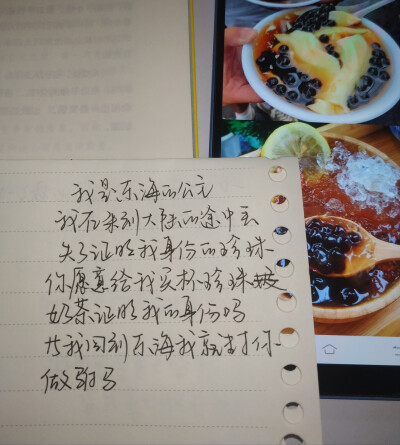 我是东海的公主
我在来到大陆的途中丢
失了证明我身份的珍珠
你愿意给我买杯珍珠
奶茶证明我的身份吗
等我回到东海我就封你
做驸马